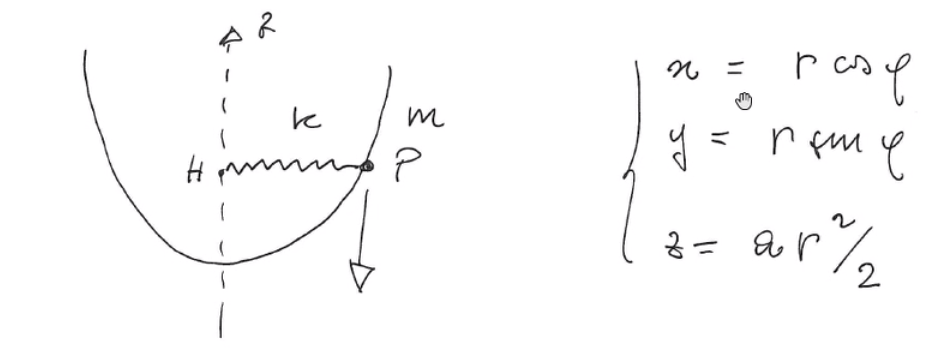 z
k
m
H
P
x = r cos φ
y = r sin φ
z = a r²/2